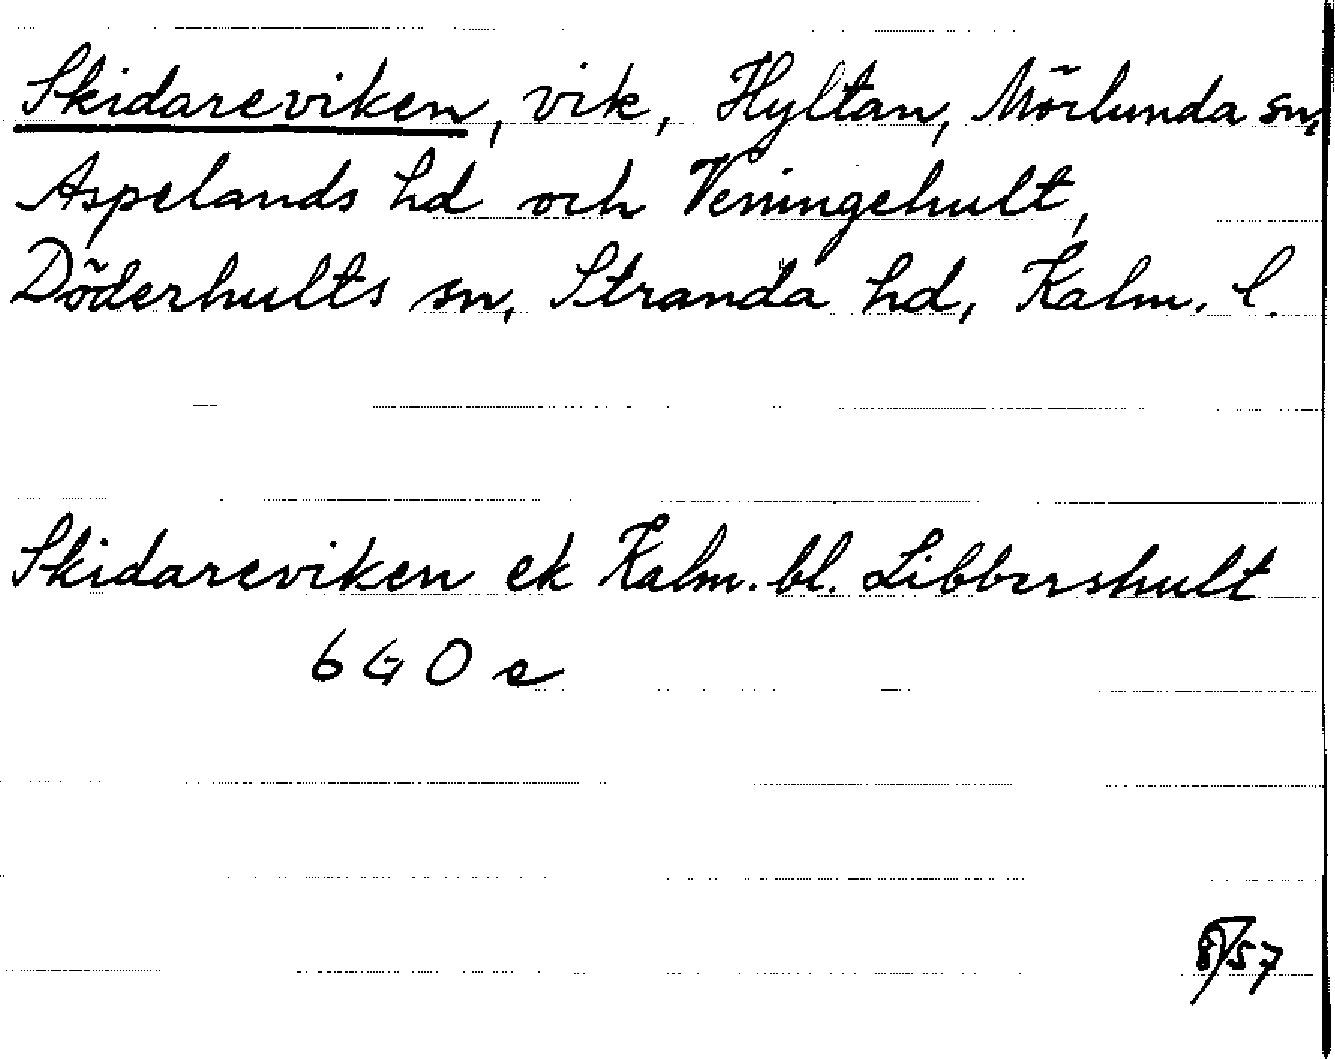 Skidareviken, vik, Hyltan, Mörlunda sn,
Aspelands hd och Veningehult,
Döderhults sn, Stranda hd, Kalm. l.
Skidareviken ek Kalm. bl. Libbershult
6 G O e
/57